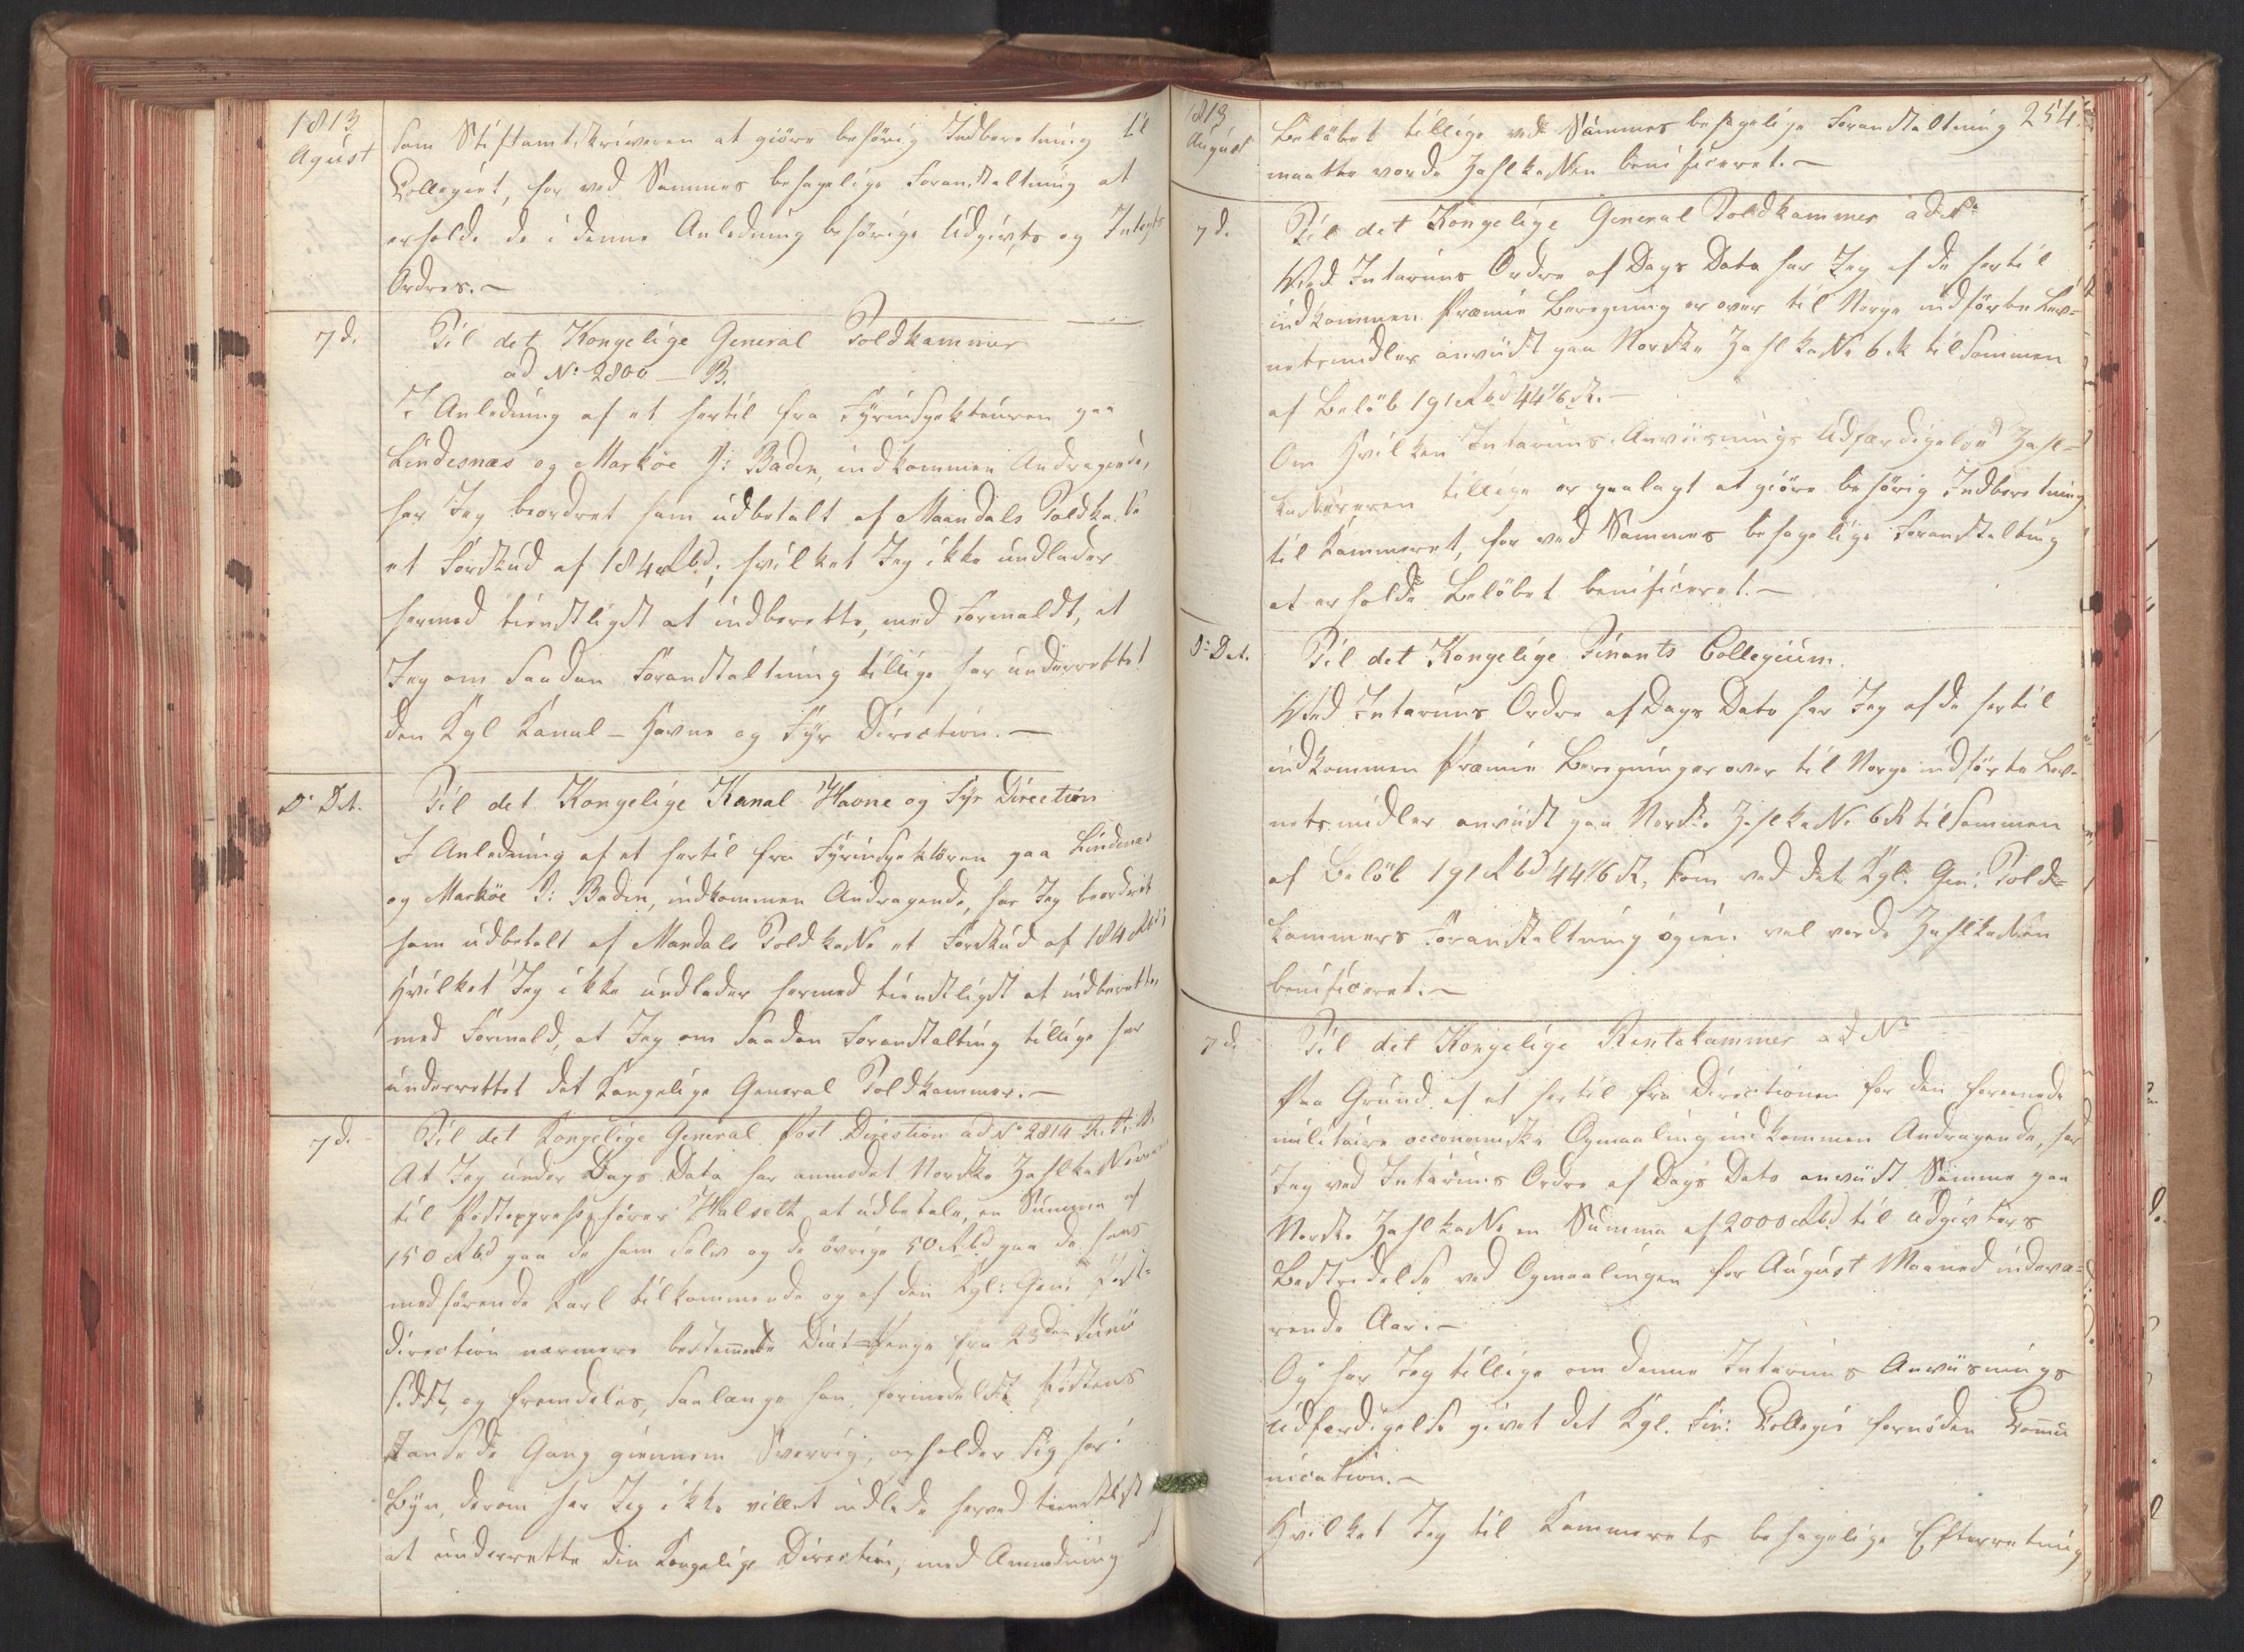 1813
Agust
som Stiftamtskriveren at giöre behörig Indberetning til
Collegiet, for ved Sammes behagelige Foranstaltning at
erholde de i denne Anledning behörige Udgivts og Indtegts
Ordres.—
7 d.
Til det Kongelige General Toldkammer
ad No 2800 — B.
I Anledning af et hertil fra Fyrinspekteuren paa
Lindesnæs og Markøe J: Baden, indkommen Andragende,
har Jeg beordret ham udbetalt af Mandals Toldkasse
et Forskud af 184 Rbd; hvilket Jeg ikke undlader
hermed tienstligst at indberette, med Formeldt, at
Jeg om saadan Foranstaltning tillige har underrettet
den Kgl Kanal- Havne og Fyr Direction.—
Do Dat.
Til det Kongelige Kanal Havne og Fyr Direction
I Anledning af et hertil fra Fyrinspektören paa Lindenæs
og Markøe J: Baden, indkommen Andragende, har Jeg beordret
ham udbetalt af Mandals Toldkasse et Forskud af 184 Rbd;
Hvilket Jeg ikke undlader hermed tienstligst at indberette,
med Formeld, at Jeg om saadan Foranstalting tillige har
underrettet det Kongelige General Toldkammer.—
7 d.
Til det Kongelige General Post Direction ad No 2814
At Jeg under Dags Dato har anmodet Norske Zahlkasserer
til Postexpresseförer Halseth at udbetale, en Summa af
150 Rbd paa de ham selv og de övrige 50 Rbd paa de hans
medförende Karl tilkommende og af den Kgl: Gen: Post-
direction nærmere bestemmede Diæt-Penge fra 23den Junii
sidst, og fremdeles, saalænge han, formedelst Postens
standsede Gang giennem Sverrig, opholder sig her i
Byen, derom har Jeg ikke villet undlade herved tienstligst
at underrette den Kongelige Direction, med Anmodning
1813
August
254.
Belöbet tillige ved Sammes behagelige Foranstaltning
maatte vorde Zahlkassen benificeret.—
7 d.
Til det Kongelige General Toldkammer ad No
Ved Interims Ordre af Dags Dato har Jeg af de hertil
indkommen Præmie Beregning er over til Norge indförte Lev-
netsmidler anviist paa Norske Zahlkasse 6 St tilsammen
af Belöb 191 Rbd 44 1/6 St.—
Om Hvilken Interims Anviisnings Udfærdigelse Zahl-
kassereren tillige er paalagt at giöre behörig Indberetning
til Kammeret, for ved Sammes behagelige Foranstalting
at erholde Belöbet benificeret.—
Do Dat.
Til det Kongelige Finants Collegium.
Ved Interims Ordre af Dags Dato har Jeg af de hertil
indkommen Præmie Beregninger over til Norge indförte Lev-
netsmidler anviist paa Norske Zahlkasse 6 St tilsammen
af Belöb 191 Rbd 44 1/6 St, som ved det Kgl: Gen: Told-
kammers Foranstaltning igien vel vorde Zahlkassen
benificeret.—
7 d.
Til det Kongelige Rentekammer ad No
Paa Grund af et hertil fra Directionen for den foreenede
militaire oeconomiske Opmaaling indkommen Andragende, har
Jeg ved Interims Ordre af Dags Dato anviist Samme paa
Norske Zahlkasse en Summa af 2000 Rbd til Udgivters
Bestridelse ved Opmaalingen for August Maaned indevæ-
rende Aar.—
Og har Jeg tillige om denne Interims Anviisnings
Udfærdigelse givet det Kgl. Fin: Collegii fornöden Commu
nication.—
Hvilket Jeg til Kammerets behagelige Efterretning